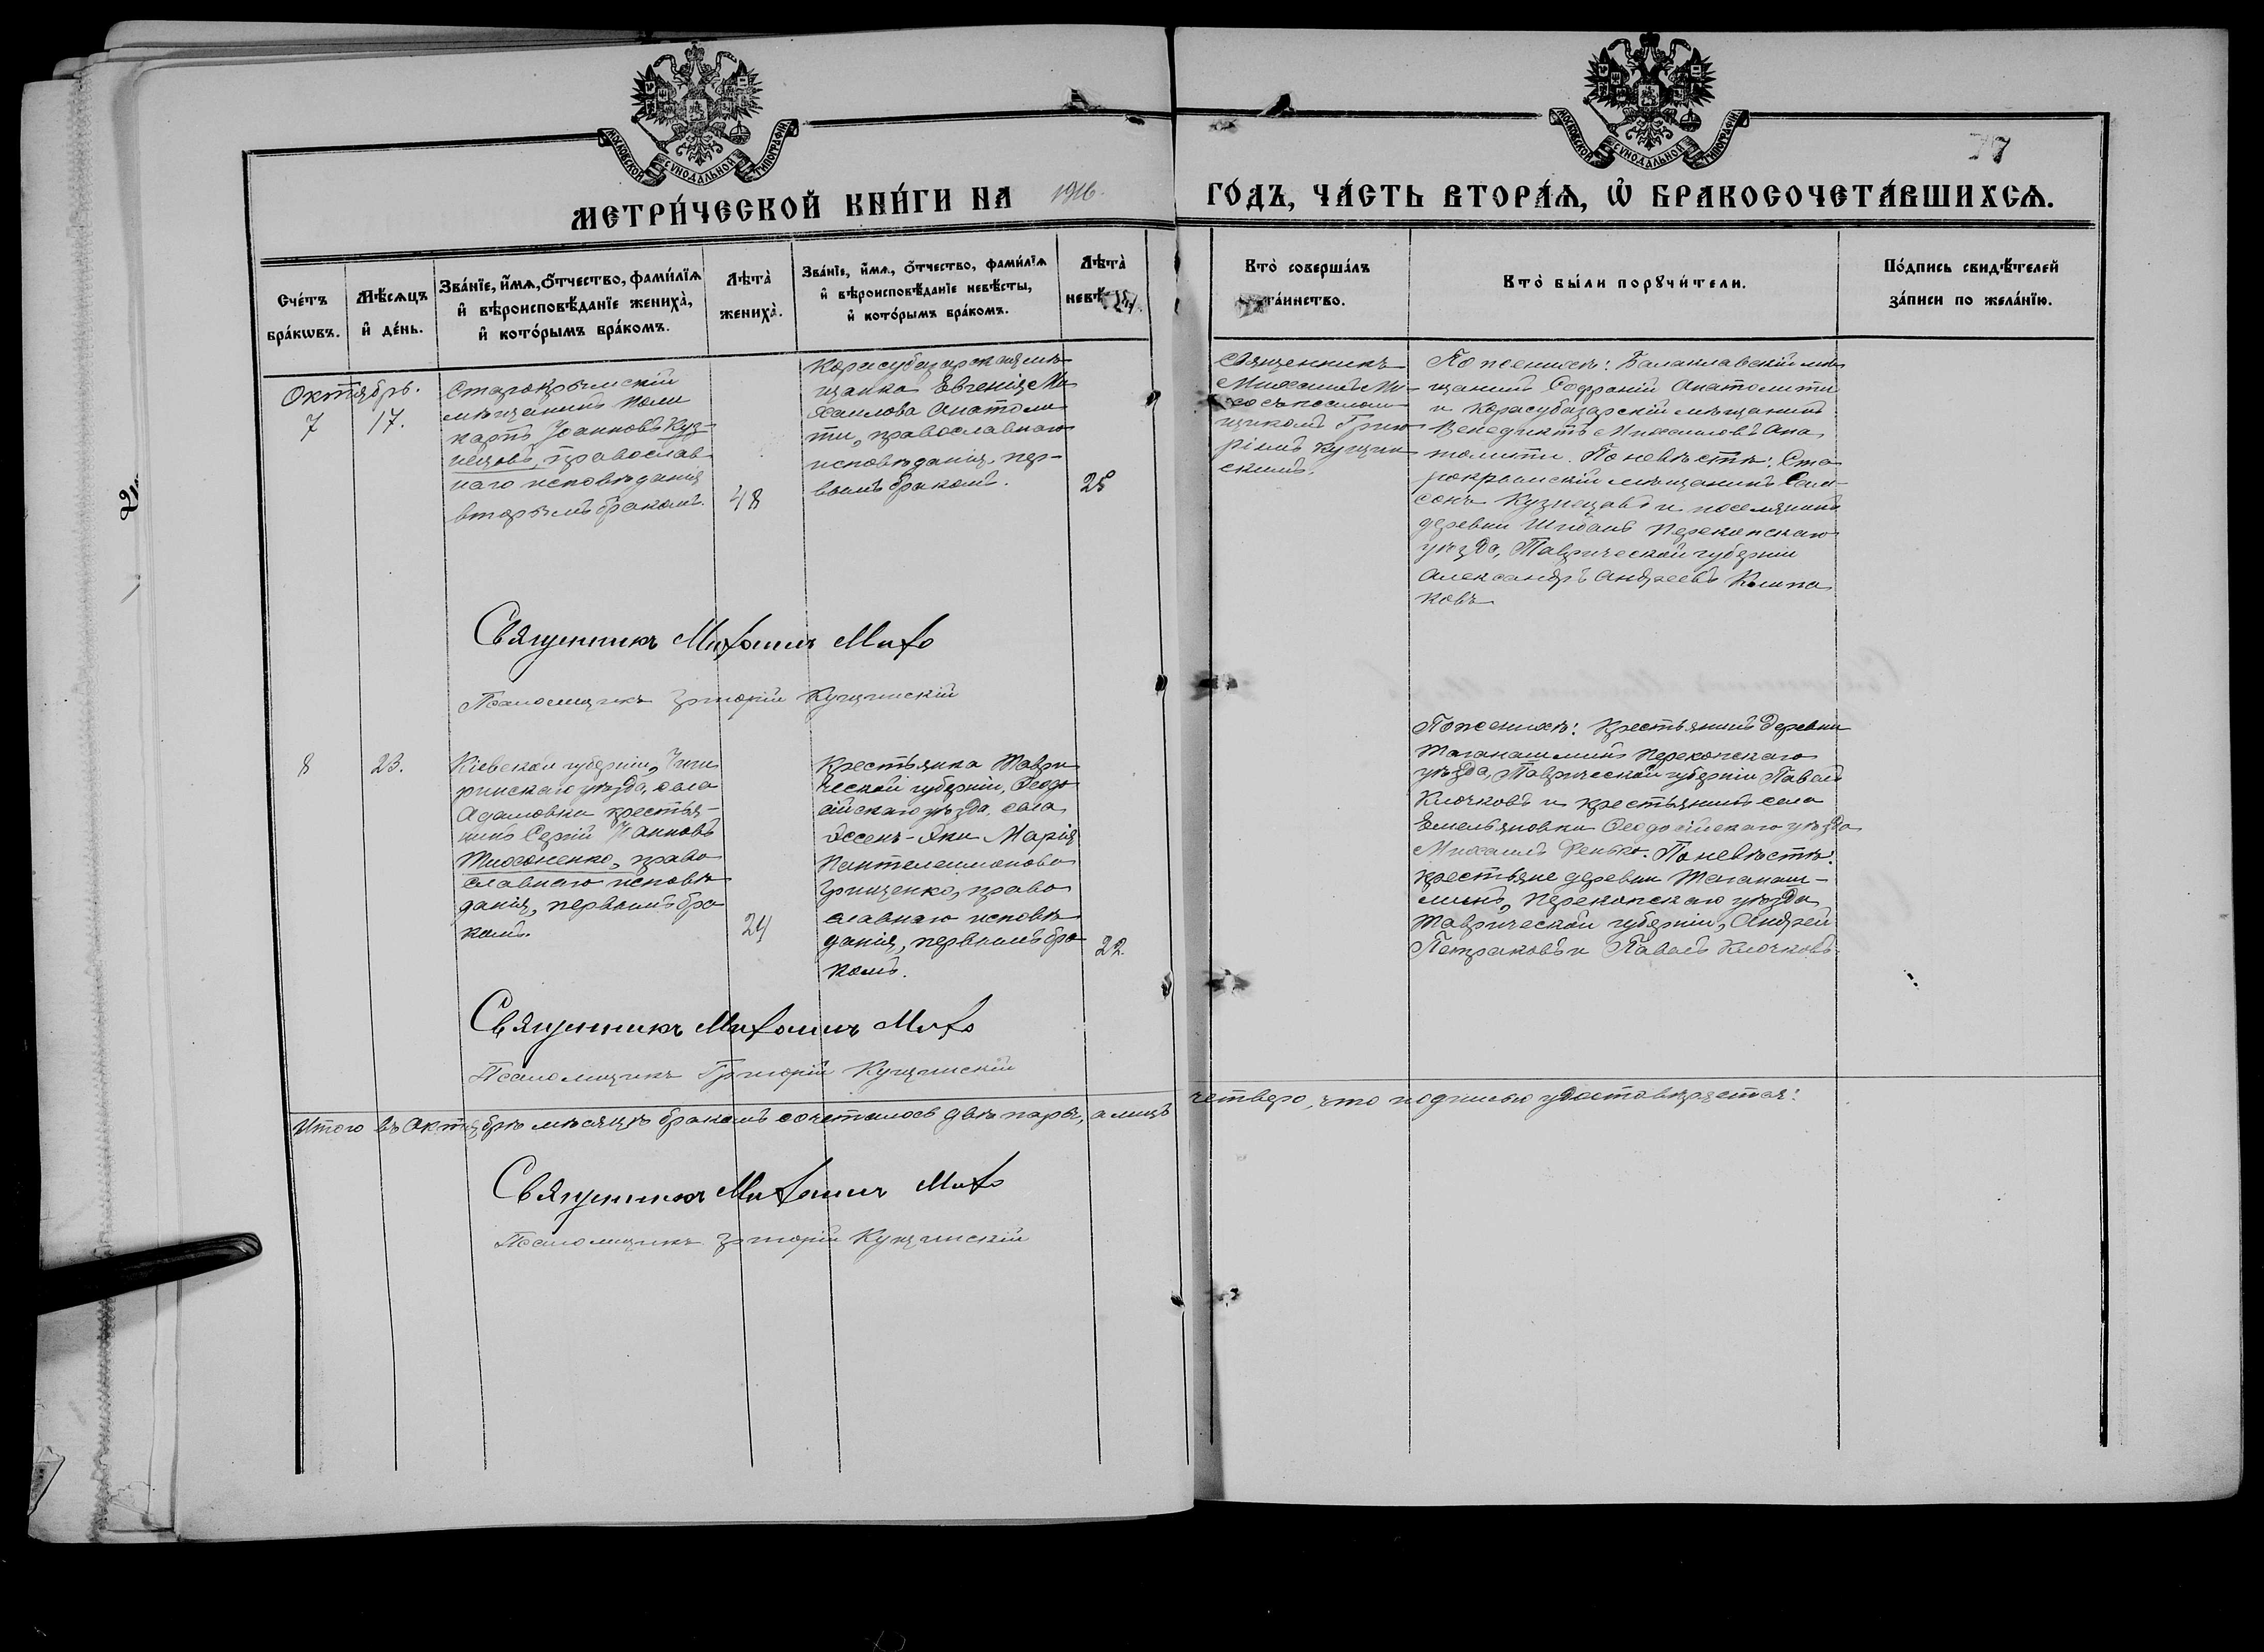 МОСКОВСКОЙ СУНОДАЛЬНОЙ ТИПОГРАФІИ
МОСКОВСКОЙ СУНОДАЛЬНОЙ ТИПОГРАФІИ
77
МЕТРИ́ЧЕСКОЙ КНИ́ГИ НА 1916.
ГО́ДЪ, ЧА́СТЬ ВТОРА́Ѧ, Ѽ БРАКОСОЧЕТА́ВШИХСѦ.
Сче́тъ бра́кѡвъ.
Мѣ́сѧцъ и҆ де́нь.
Зва́нїе, и҆́мѧ, ѻ҆́тчество, фами́лїѧ
и҆ вѣроисповѣ́данїе жениха̀,
и҆ кото́рымъ бра́комъ.
Лѣта̀
жениха̀.
Зва́нїе, и҆́мѧ, ѻ҆́тчество, фами́лїѧ
и҆ вѣроисповѣ́данїе невѣ́сты,
и҆ кото́рымъ бра́комъ.
Лѣта̀
невѣ
Кто̀ соверша́лъ
та́инство.
Кто̀ бы́ли порꙋчи́тели.
По́дпись свидѣ́телей
за́писи по жела́нїю.
Октябрь.
7
17.
Старокрымскій
мѣщанинъ Поли
карпъ Іоанновъ Куз-
нецовъ, православ
наго исповѣданія
вторымъ бракомъ.
48
Карасубазарская мѣ
щанка Евгенія Ми
хаилова Анатоли
ти, православнаго
исповѣданія, пер-
вымъ бракомъ.
25
Священникъ
Михаилъ Ми-
хо съ псалом
щикомъ Григо
ріемъ Кущин
скимъ.
По женихѣ: Балаклавскій мѣ
щанинъ Софроній Анатолити
и Карасубазарскій мѣщанинъ
Венедиктъ Михаиловъ Ана
толити. По невѣстѣ: Ста
рокрымскій мѣщанинъ Сам
сонъ Кузнецовъ и поселянинъ
деревни Шибань Перекопскаго
уѣзда, Таврической губерніи
Александръ Андреевъ Колпа
ковъ
Священникъ Михаилъ Михо
Псаломщикъ Григорій Кущинскій
8
23.
Кіевской губерніи, Чиги
ринскаго уѣзда, села
Адамовки крестья-
нинъ Сергій Іоанновъ
Тихоненко, право
славнаго исповѣ
данія, первымъ бра
комъ.
24
Крестьянка Таври
ческой губерніи, Ѳеодо
сійскаго уѣзда, села
Эссенъ-Эки Марія
Пантелеимонова
Грищенко, право
славнаго исповѣ
данія, первымъ бра
комъ.
22.
По женихѣ: Крестьянинъ деревни
Таганашминъ Перекопскаго
уѣзда, Таврической губерніи Павелъ
Клочковъ и крестьянинъ села
Емельяновки Ѳеодосійскаго уѣзда
Михаилъ Фенько. По невѣстѣ:
крестьяне деревни Таганаш-
минъ, Перекопскаго уѣзда
Таврической губерніи, Андрей
Петраковъ и Павелъ Клочковъ.
Священникъ Михаилъ Михо
Псаломщикъ Григорій Кущинскій
Итого въ Октябрѣ мѣсяцѣ бракомъ сочеталось двѣ пары, а лицъ четверо, что подписью удостовѣряется:
Священникъ Михаилъ Михо
Псаломщикъ Григорій Кущинскій